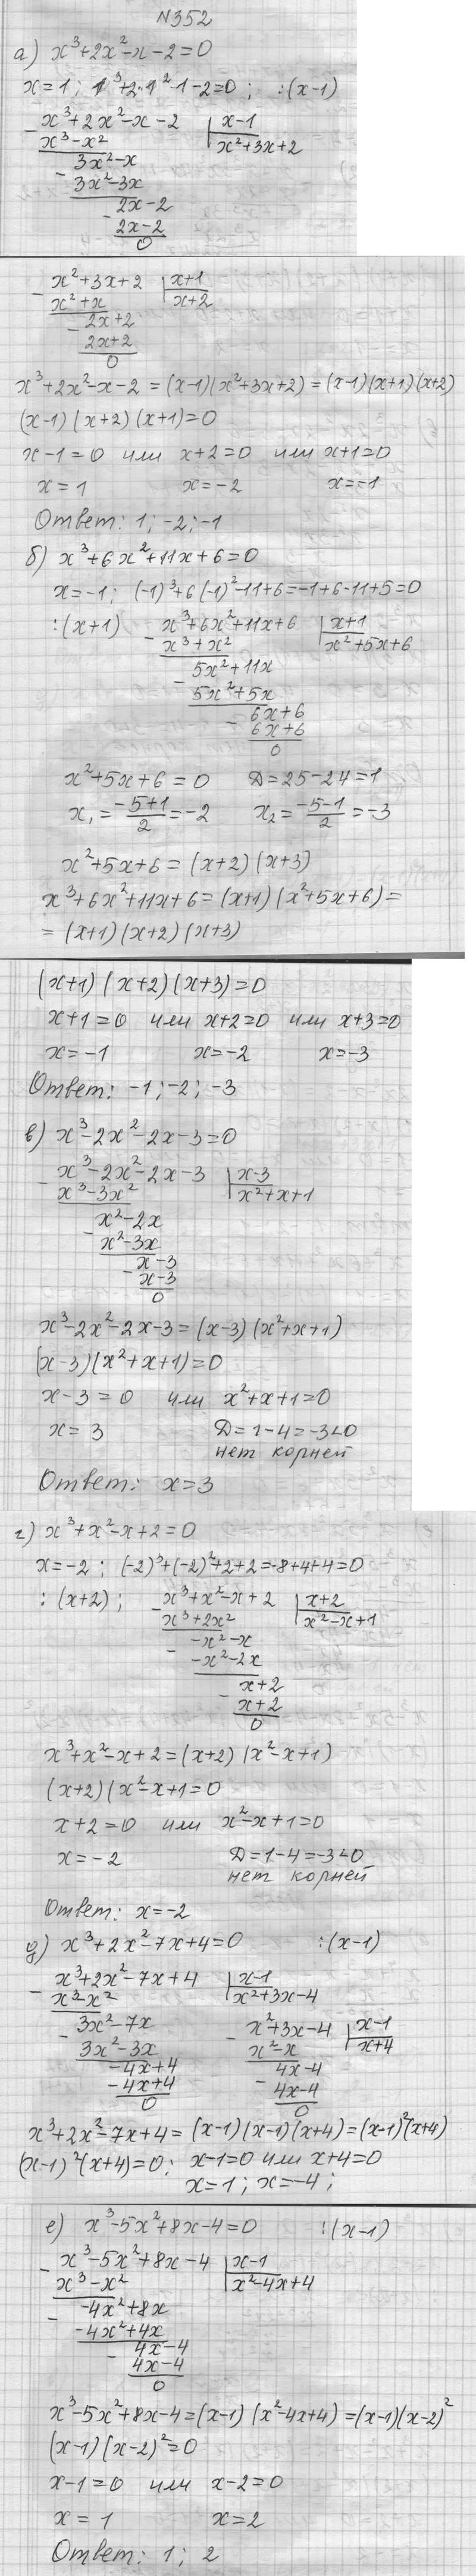 №352
а) x³+2x²-x-2=0
x=1; 1³+2·1²-1-2=0; :(x-1)
x³+2x²-x-2 | x-1
x³-x² | x²+3x+2
3x²-x
3x²-3x
2x-2
2x-2
0
x²+3x+2 | x+1
x²+x | x+2
2x+2
2x+2
0
x³+2x²-x-2=(x-1)(x²+3x+2)=(x-1)(x+1)(x+2)
(x-1)(x+2)(x+1)=0
x-1=0 или x+2=0 или x+1=0
x=1 x=-2 x=-1
Ответ: 1; -2; -1
б) x³+6x²+11x+6=0
x=-1; (-1)³+6(-1)²-11+6=-1+6-11+5=0
:(x+1) x³+6x²+11x+6 | x+1
x³+x² | x²+5x+6
5x²+11x
5x²+5x
6x+6
6x+6
0
x²+5x+6=0 D=25-24=1
x₁=(-5+1)/2=-2 x₂=(-5-1)/2=-3
x²+5x+6=(x+2)(x+3)
x³+6x²+11x+6=(x+1)(x²+5x+6)=
=(x+1)(x+2)(x+3)
(x+1)(x+2)(x+3)=0
x+1=0 или x+2=0 или x+3=0
x=-1 x=-2 x=-3
Ответ: -1; -2; -3
в) x³-2x²-2x-3=0
x³-2x²-2x-3 | x-3
x³-3x² | x²+x+1
x²-2x
x²-3x
x-3
x-3
0
x³-2x²-2x-3=(x-3)(x²+x+1)
(x-3)(x²+x+1)=0
x-3=0 или x²+x+1=0
x=3 D=1-4=-3<0
нет корней
Ответ: x=3
г) x³+x²-x+2=0
x=-2; (-2)³+(-2)²+2+2=-8+4+4=0
:(x+2); x³+x²-x+2 | x+2
x³+2x² | x²-x+1
-x²-x
-x²-2x
x+2
x+2
0
x³+x²-x+2=(x+2)(x²-x+1)
(x+2)(x²-x+1=0
x+2=0 или x²-x+1=0
x=-2 D=1-4=-3<0
нет корней
Ответ: x=-2
д) x³+2x²-7x+4=0 :(x-1)
x³+2x²-7x+4 | x-1
x³-x² | x²+3x-4
3x²-7x
3x²-3x
-4x+4
-4x+4
0
x²+3x-4 | x-1
x²-x | x+4
4x-4
4x-4
0
x³+2x²-7x+4=(x-1)(x-1)(x+4)=(x-1)²(x+4)
(x-1)²(x+4)=0; x-1=0 или x+4=0
x=1; x=-4;
е) x³-5x²+8x-4=0 :(x-1)
x³-5x²+8x-4 | x-1
x³-x² | x²-4x+4
-4x²+8x
-4x²+4x
4x-4
4x-4
0
x³-5x²+8x-4=(x-1)(x²-4x+4)=(x-1)(x-2)²
(x-1)(x-2)²=0
x-1=0 или x-2=0
x=1 x=2
Ответ: 1; 2